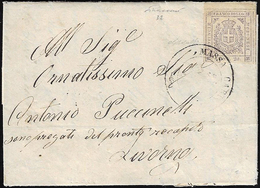 Al Sig.e
Ornatissimo Sig.
Antonio Puccinelli
sono pregati del pronto recapito
Livorno
MASSA